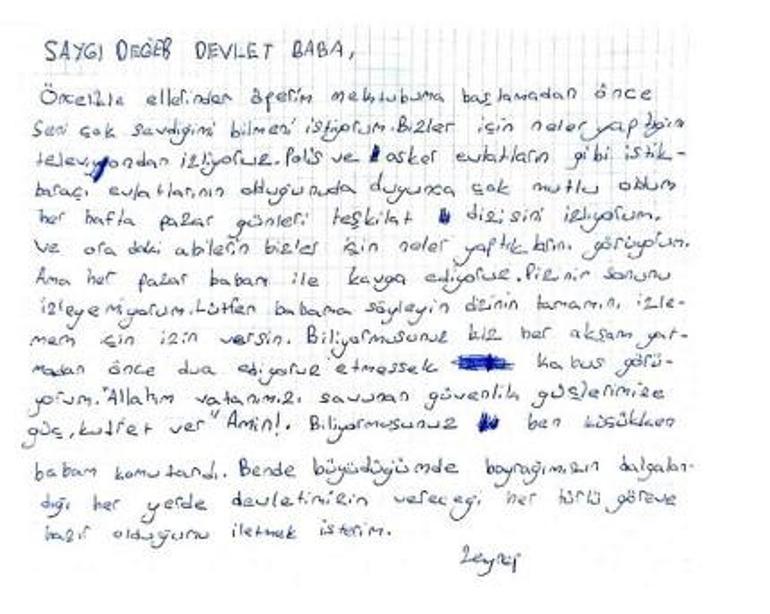 SAYGI DEĞER DEVLET BABA,
Öncelikle ellerinden öperim mektubuma başlamadan önce
Seni çok sevdiğimi bilmeni istiyorum. Bizler için neler yaptığını
televizyondan izliyoruz. Polis ve asker evlatların gibi istih-
baratçı evlatlarının olduğunuda duyunca çok mutlu oldum
her hafta pazar günleri teşkilat dizisini izliyorum.
ve ora daki abilerin bizler için neler yaptıklarını görüyorum.
Ama her pazar babam ile kavga ediyoruz. Dizinin sonunu
izleyemiyorum. Lütfen babama söyleyin dizinin tamamını izle-
mem için izin versin. Biliyormusunuz biz her akşam yat-
madan önce dua ediyoruz etmessek kabus görü-
yorum. "Allahım vatanımızı savunan güvenlik güçlerimize
güç, kudret ver" Amin!. Biliyormusunuz ben küçükken
babam komutandı. Bende büyüdüğümde bayrağımızın dalgalan-
dığı her yerde devletimizin vereceği her türlü göreve
hazır olduğumu iletmek isterim.
Zeynep